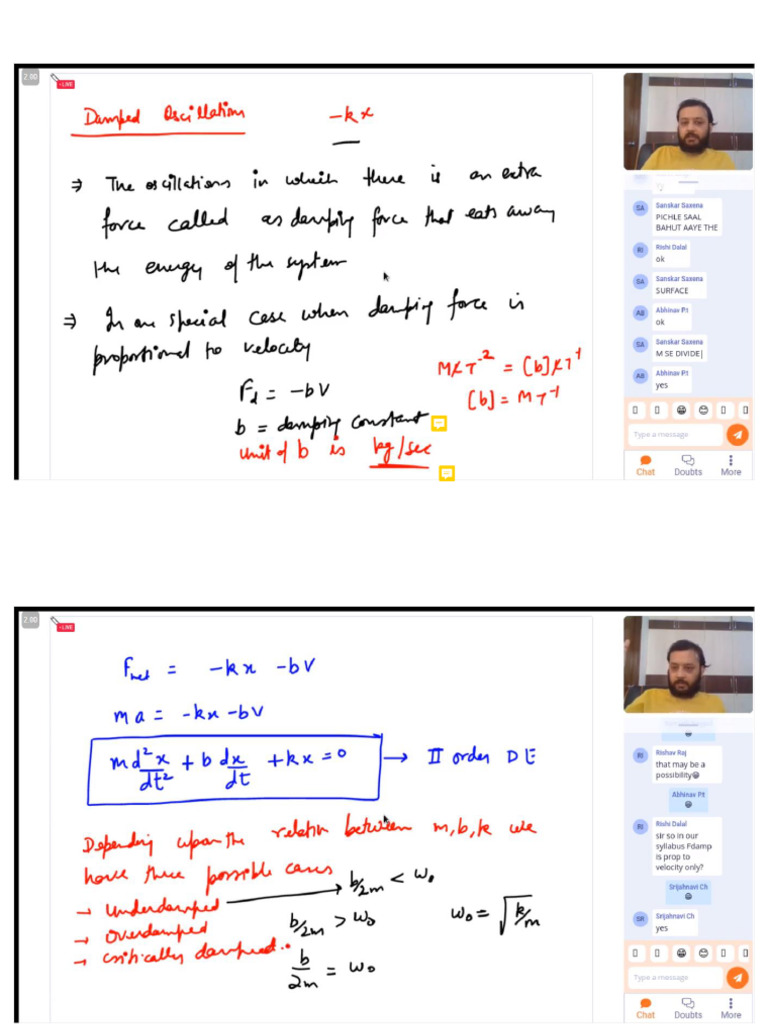 2:00
LIVE
Damped Oscillation -kx
⇒ The oscillations in which there is an extra
force called as damping force that eats away
the energy of the system
⇒ In one special case when damping force is
proportional to velocity
F_d = -bV
b = damping constant
unit of b is kg/sec
MLT⁻² = [b]LT⁻¹
[b] = MT⁻¹
SA Sanskar Saxena
PICHLE SAAL
BAHUT AAYE THE
RI Rishi Dalal
ok
SA Sanskar Saxena
SURFACE
AB Abhinav P.t
ok
SA Sanskar Saxena
M SE DIVIDE|
AB Abhinav P.t
yes
Type a message
Chat Doubts More
2:00
LIVE
F_net = -kx -bV
ma = -kx-bV
m d²x/dt² + b dx/dt + kx = 0 → II order DE
Depending upon the relation between m,b,k we
have three possible cases
→ Underdamped → b/2m < ω₀
→ overdamped b/2m > ω₀ ω₀ = √k/m
→ critically damped.. b/2m = ω₀
RI Rishav Raj
that may be a
possibility😁
Abhinav P.t
😁
RI Rishi Dalal
sir so in our
syllabus Fdamp
is prop to
velocity only?
Srijahnavi Ch
😁
SR Srijahnavi Ch
yes
Type a message
Chat Doubts More